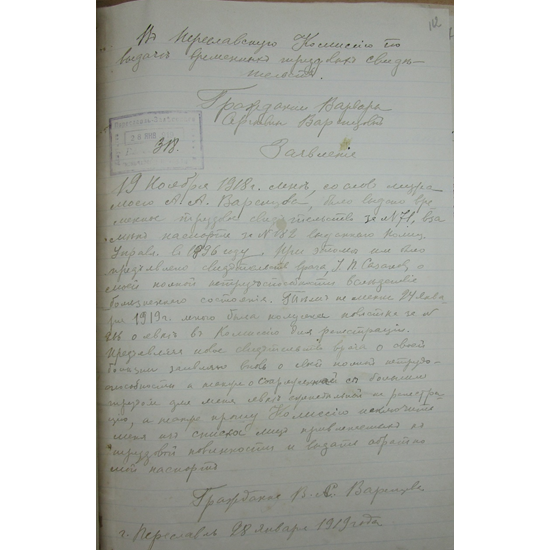 12
Въ Переславскую Комиссію по
выдачѣ временныхъ трудовыхъ свидѣ-
тельствъ.
318.
Варвары
Заявленіе
19 Ноября 1918 г. мнѣ, со словъ мужа
моего А. А. Варенцова, было выдано вре
менное трудовое свидѣтельство за № 71, вза
мѣнъ паспорта за № выданного
Управ. въ 1896 году. При этомъ им было
предъявлено свидѣтельство врача о
моей полной нетрудоспособности вслѣдствіе
болѣзненного состоянія. 24 янва
ря 1919 г. мною была получена повѣстка за №
о явкѣ въ Комиссію для регистраціи.
Представляя новое свидѣтельство врача о своей
болѣзни заявляю вновь о своей полной нетрудо-
способности и съ большимъ
трудомъ для меня явкой на регистра
цію, я прошу Комиссію исключить
меня изъ списка лицъ привлекаемыхъ къ
трудовой повинности и выдать обратно
мой паспортъ
Гражданка В. А. Варенцова
г. Переславль 28 января 1919 года